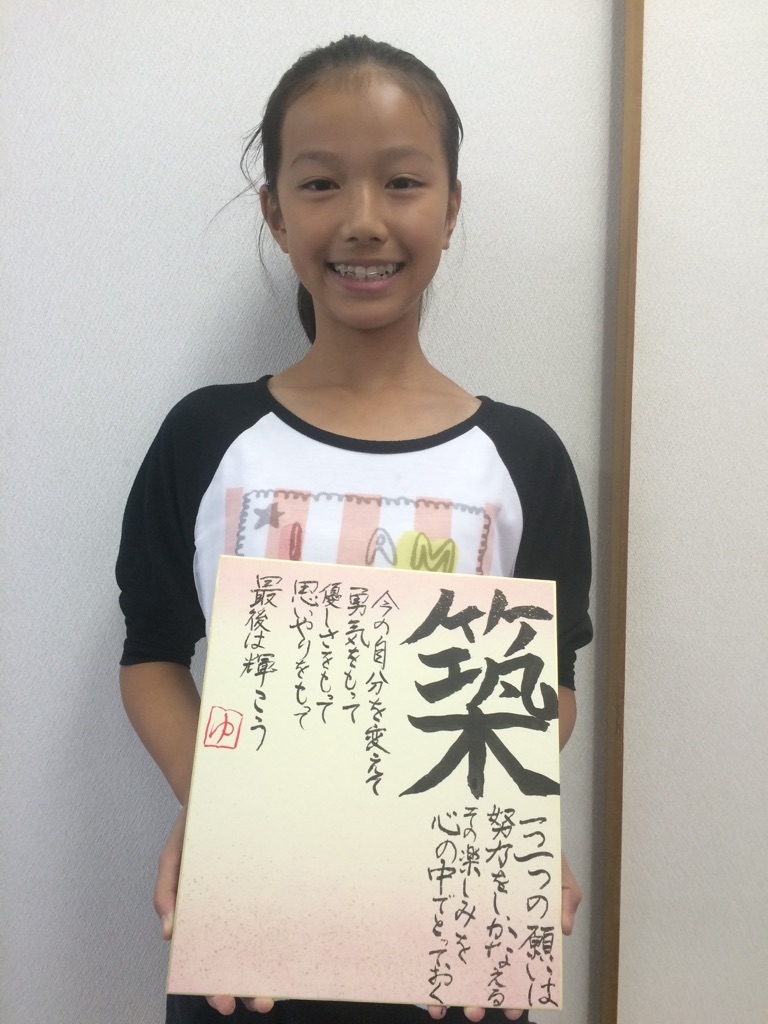 築
一つ一つの願いは
努力をしかなえる
その楽しみを
心の中でとっておく。
今の自分を変えて
勇気をもって
優しさをもって
思いやりをもって
最後は輝こう
ゆ
I AM